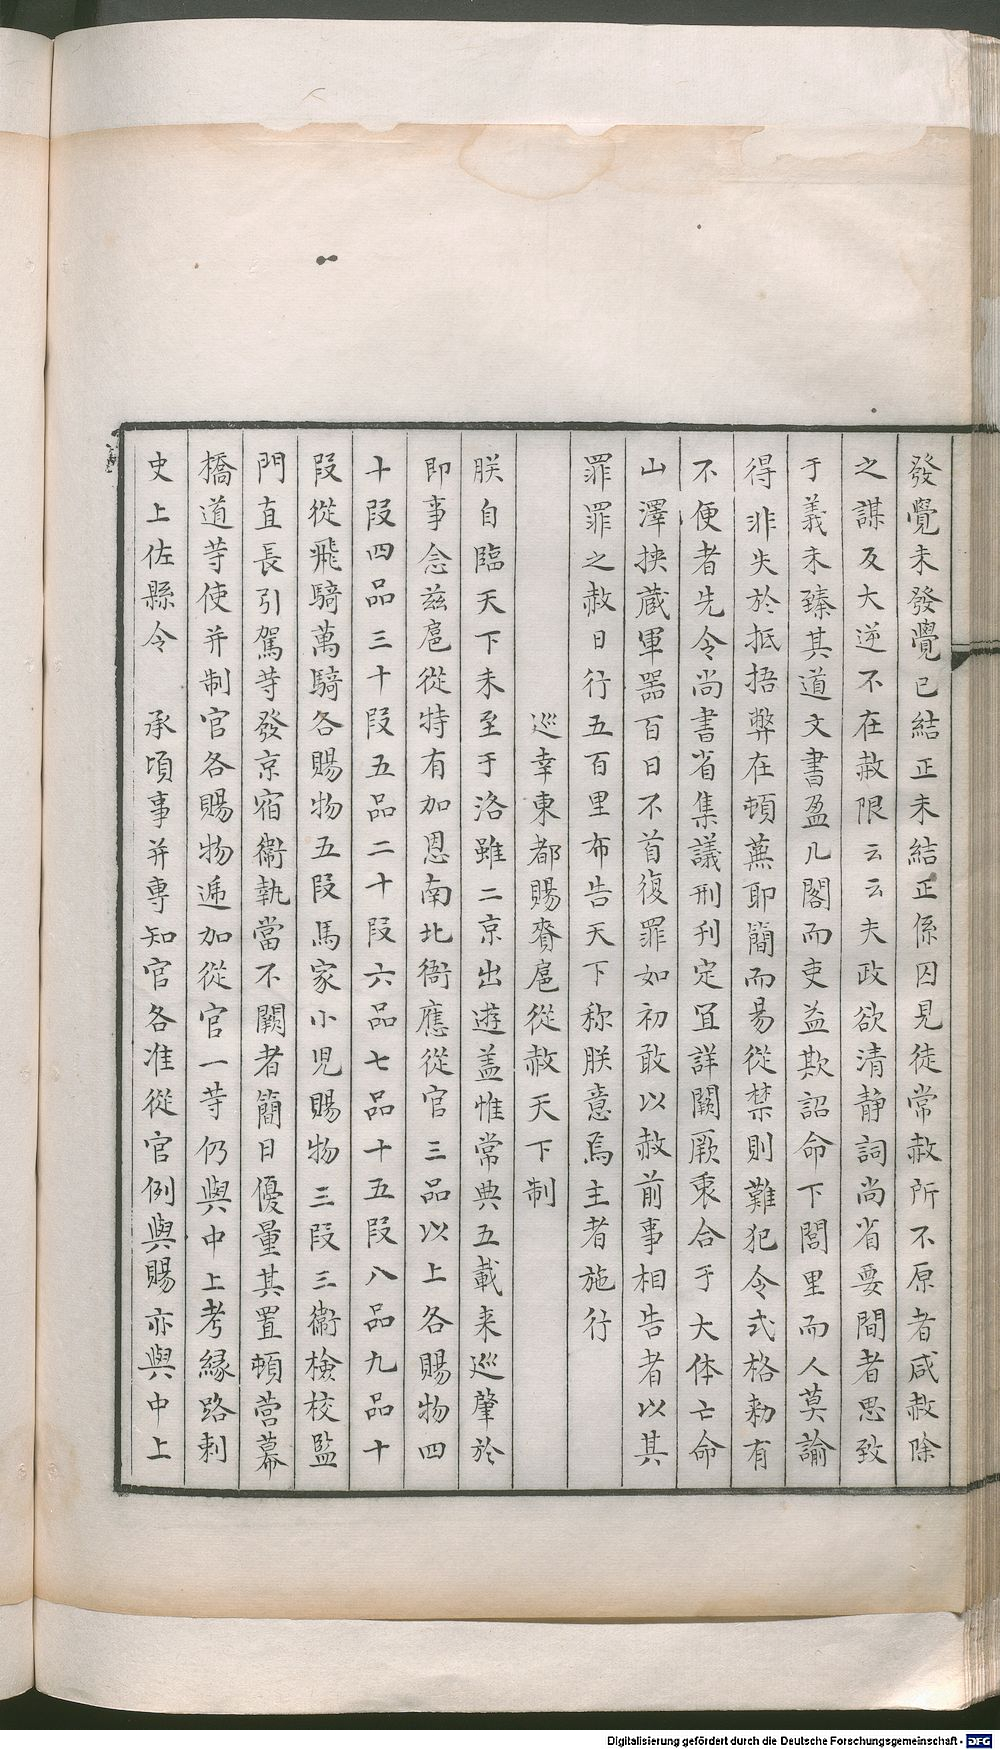 發覺未發覺已結正未結正係囚見徒常赦所不原者咸赦除
之謀反大逆不在赦限云云夫政欲清静詞尚省要間者思致
于義未臻其道文書盈几閣而吏益欺詔命下閭里而人莫諭
得非失於抵捂弊在頓蕪耶簡而易從禁則難犯令式格勑有
不便者先令尚書省集議刑刊定宜詳闕厥衷合于大体亡命
山澤挾蔵軍器百日不首復罪如初敢以赦前事相告者以其
罪罪之赦日行五百里布告天下称朕意焉主者施行
巡幸東都賜賚扈從赦天下制
朕自臨天下未至于洛雖二京出遊盖惟常典五載来巡肇於
即事念兹扈從特有加恩南北衙應從官三品以上各賜物四
十叚四品三十叚五品二十叚六品七品十五叚八品九品十
叚從飛騎萬騎各賜物五叚馬家小児賜物三叚三衞檢校監
門直長引駕等發京宿衞執當不闕者簡日優量其置頓營幕
橋道等使并制官各賜物遞加從官一等仍與中上考縁路刺
史上佐縣令　承頃事并專知官各准從官例與賜亦與中上
Digitalisierung gefördert durch die Deutsche Forschungsgemeinschaft - DFG